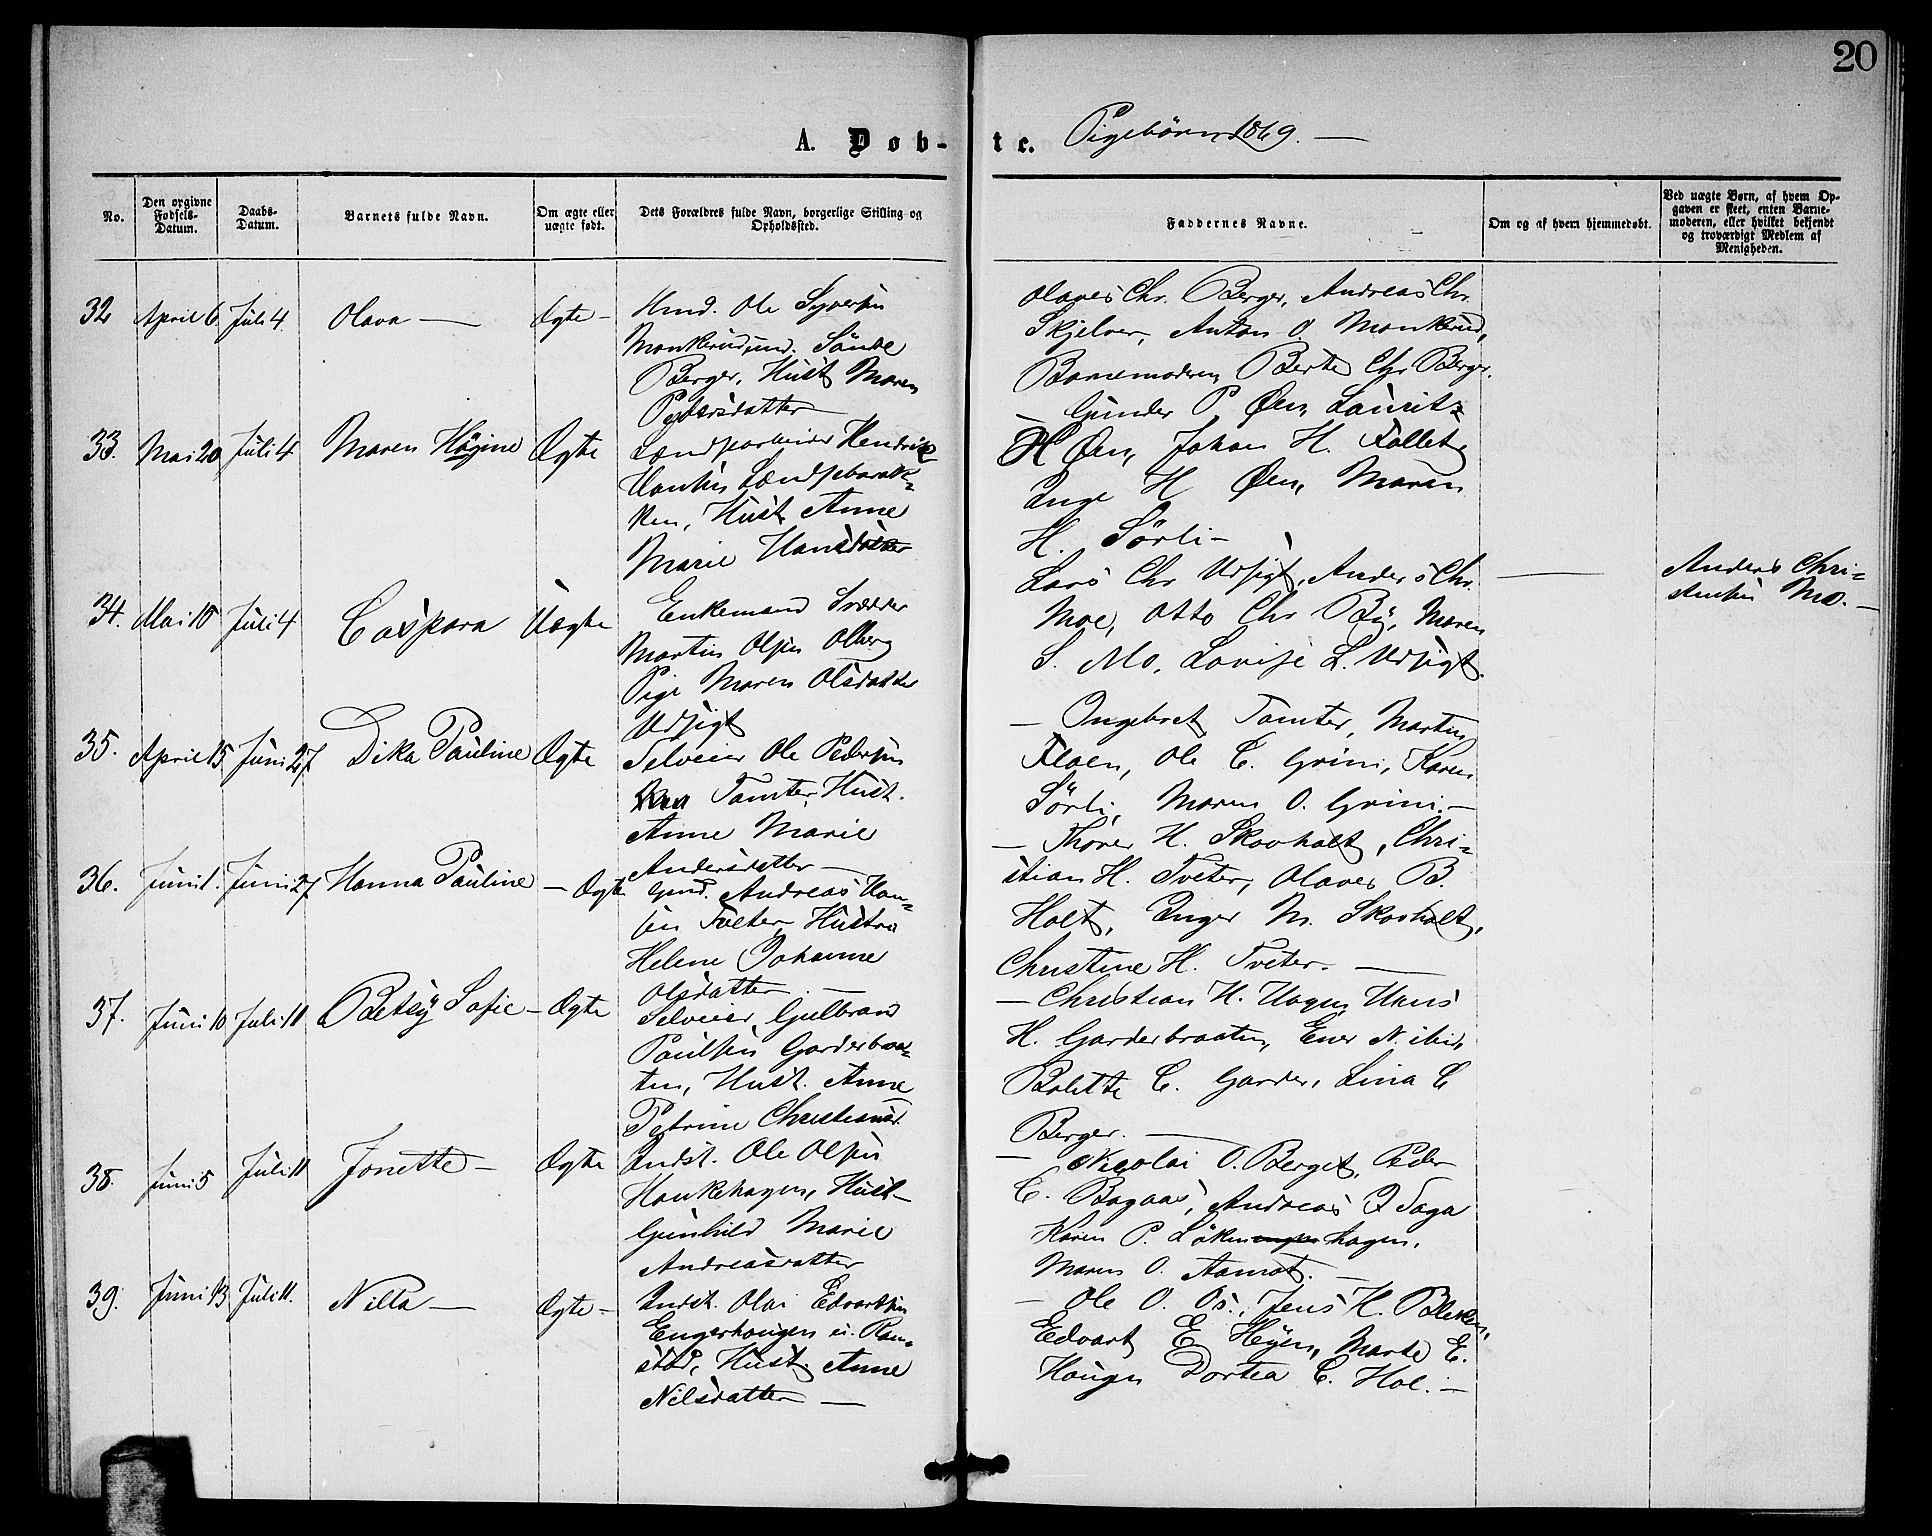 20
A. Døb-te. Pigebörn 1869. —
No.
Den opgivne Fødsels-Datum.
Daabs-Datum.
Barnets fulde Navn.
Om ægte eller uægte født.
Dets Forældres fulde Navn, borgerlige Stilling og Opholdssted.
Faddernes Navne.
Om og af hvem hjemmedøbt.
Ved uægte Børn, af hvem Opgaven er skeet, enten Barnemoderen, eller hvilket bekjendt og troværdigt Medlem af Menigheden.
32 April 6 Juli 4. Olava — Ægte —
Hmd. Ole Syversen
Monkerud und. Söndre
Berger, Hust Maren
Pedersdatter
Olaves Chr. Berger, Andreas Chr.
Skjelver, Anton O. Monkerud,
Barnemoderen Berte Chr Berger.
33. Mai 20 Juli 4 Maren Högine Ægte
Hendrik
Hansen
ken, Hust. Anne
Marie Hansdatter
— Gunder P. Øen, Lauritz
H Øen, Johan H. Fallet,
Inge H Øen, Maren
H. Sörli —
34. Mai 10 Juli 4 Caspara Uægte
Enkemand Skrædder
Martin Olsen Olberg
Pige Maren Olsdatter
Udsigt
Lars Chr Udsigt, Anders Chr.
Moe, Otto Chr By, Maren
S. Mo, Lovise L. Udsigt.
—
Anders Chri=
stensen Mo. —
35. April 15 Juni 27 Dika Pauline Ægte
Selveier Ole Pedersen
Tomter, Hust.
Anne Marie
Andersdatter —
— Ongebret Tomter, Martin
Floen, Ole C. Grini, Karen
Sörli, Maren O. Grini. —
36. Juni 1. Juni 27 Hanna Pauline — Ægte
Gmd. Andreas Han=
sen Tveter, Hustru
Helene Johanne
Olsdatter —
— Thorer H. Skovholt, Chri=
stian H. Tveter, Olaves B.
Holt, Inger M. Skovholt,
Christine H. Tveter. —
37. Juni 10 Juli 11 Betsy Sofie — Ægte
Selveier Gulbrand
Paulsen Garderbraa=
ten, Hust. Anne
Petrine Christiansd.
— Christian H. Hagen, Hans
H. Garderbraaten, Ener N. ibid,
Bolette C. Garder, Lina C
Berger. —
38. Juni 5 Juli 11 Jonette — Ægte
Indst. Ole Olsen
Haukehagen, Hust —
Gunhild Marie
Andreasdatter
— Nicolai O. Berget, Peder
C. Bagaas, Andreas J Taga
Karen P. Löken hagen,
Maren O. Aamot. —
39. Juni 13 Juli 11. Nilla — Ægte —
Indst. Olai Edvartsen
Engerhougen u. Ram=
stad, Hust. Anne
Nilsdatter —
— Ole O. Os., Jens H. Bleken,
Edvart E. Høyen, Marte E.
Hougen Dortea C. Hol. —